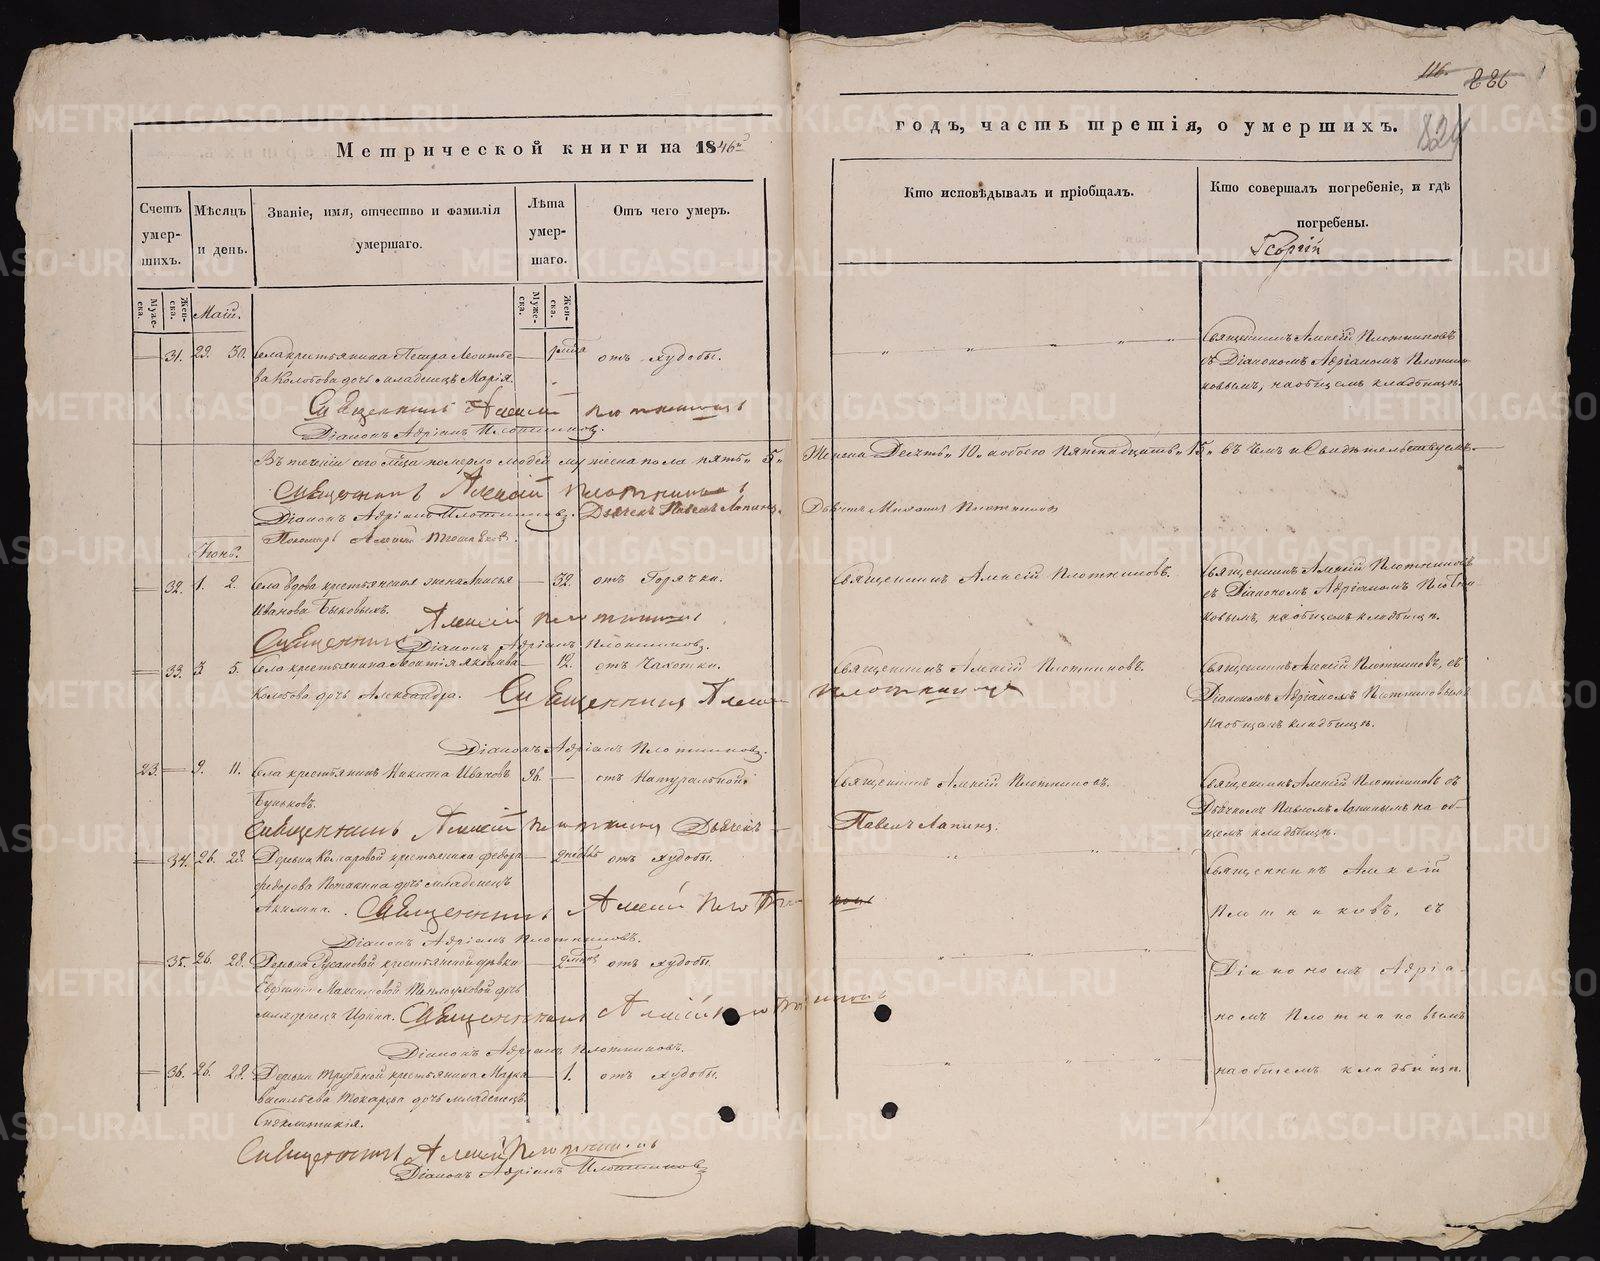 116.
226
824
Метрической книги на 1846й
годъ, часть третія, о умершихъ.
Счетъ умер-шихъ.
Мѣсяцъ и день.
Званіе, имя, отчество и фамилія умершаго.
Лѣта умер-шаго.
Отъ чего умеръ.
Кто исповѣдывалъ и пріобщалъ.
Кто совершалъ погребеніе, и гдѣ погребены.
Георгій
Муже-ска.
Жен-ска.
Муже-ска.
Жен-ска.
Маій.
31. 29. 30. Села крестьянина Петра Леонтье- отъ худобы.
ва Колобова дочь младенецъ Марія.
Священникъ Алексій Плотниковъ
съ Діакономъ Адріаномъ Плотни-
ковымъ, на общемъ кладбищѣ.
Священникъ Алексій Плотниковъ
Діаконъ Адріанъ Плотниковъ.
Въ теченіи сего м͠ца померло людей мужеска пола пять „5„ Женска Десять „10„ а обоего Пятнадцать „15„ въ чемъ и Свидѣтельствуемъ.
Священникъ Алексій Плотниковъ
Діаконъ Адріанъ Плотниковъ. Дьячекъ Павелъ Лапинъ.
Пономарь Алексій
Іюнь.
32. 1. 2. Села вдова крестьянская жена Анисья 52. отъ Горячки.
Иванова Быковыхъ.
Священникъ Алексій Плотниковъ.
Священникъ Алексій Плотниковъ
съ Діакономъ Адріаномъ Плотни-
ковымъ, на общемъ кладбищѣ.
Священникъ Алексій Плотниковъ
Діаконъ Адріанъ Плотниковъ.
33. 3. 5. Села крестьянина Леонтія Яковлева 12. отъ Чахотки.
Колобова дочь Александра.
Священникъ Алексій Плотниковъ.
Священникъ Алексій Плотниковъ, съ
Діакономъ Адріаномъ Плотниковымъ
на общемъ кладбищѣ.
Священникъ Алексій Плотниковъ
Діаконъ Адріанъ Плотниковъ.
23. 9. 11. Села крестьянинъ Никита Ивановъ 96. отъ Натуральной.
Буньковъ.
Священникъ Алексій Плотниковъ.
Священникъ Алексій Плотниковъ съ
Дьячкомъ Павломъ Лапинымъ на об-
щемъ кладбищѣ.
Священникъ Алексій Плотниковъ Дьячекъ Павелъ Лапинъ.
34. 26. 28. Деревни Комаровой крестьянина Федора отъ худобы.
Федорова Потакина дочь младенецъ
Акилина.
Священникъ Алексій Плотниковъ
Діаконъ Адріанъ Плотниковъ.
Священникъ Алексій
Плотниковъ, съ
Діакономъ Адріа-
номъ Плотниковымъ
на общемъ кладбищѣ.
35. 26. 28. Деревни Русаковой крестьянской дѣвки отъ худобы.
Евгеніи Максимовой Теплоуховой дочь
младенецъ Ирина. Священникъ Алексій Плотниковъ
Діаконъ Адріанъ Плотниковъ.
36. 26. 28. Деревни Трубиной крестьянина Марка 1. отъ худобы.
Васильева Токарева дочь младенецъ
Синклитикія.
Священникъ Алексій Плотниковъ
Діаконъ Адріанъ Плотниковъ
METRIKI.GASO-URAL.RU